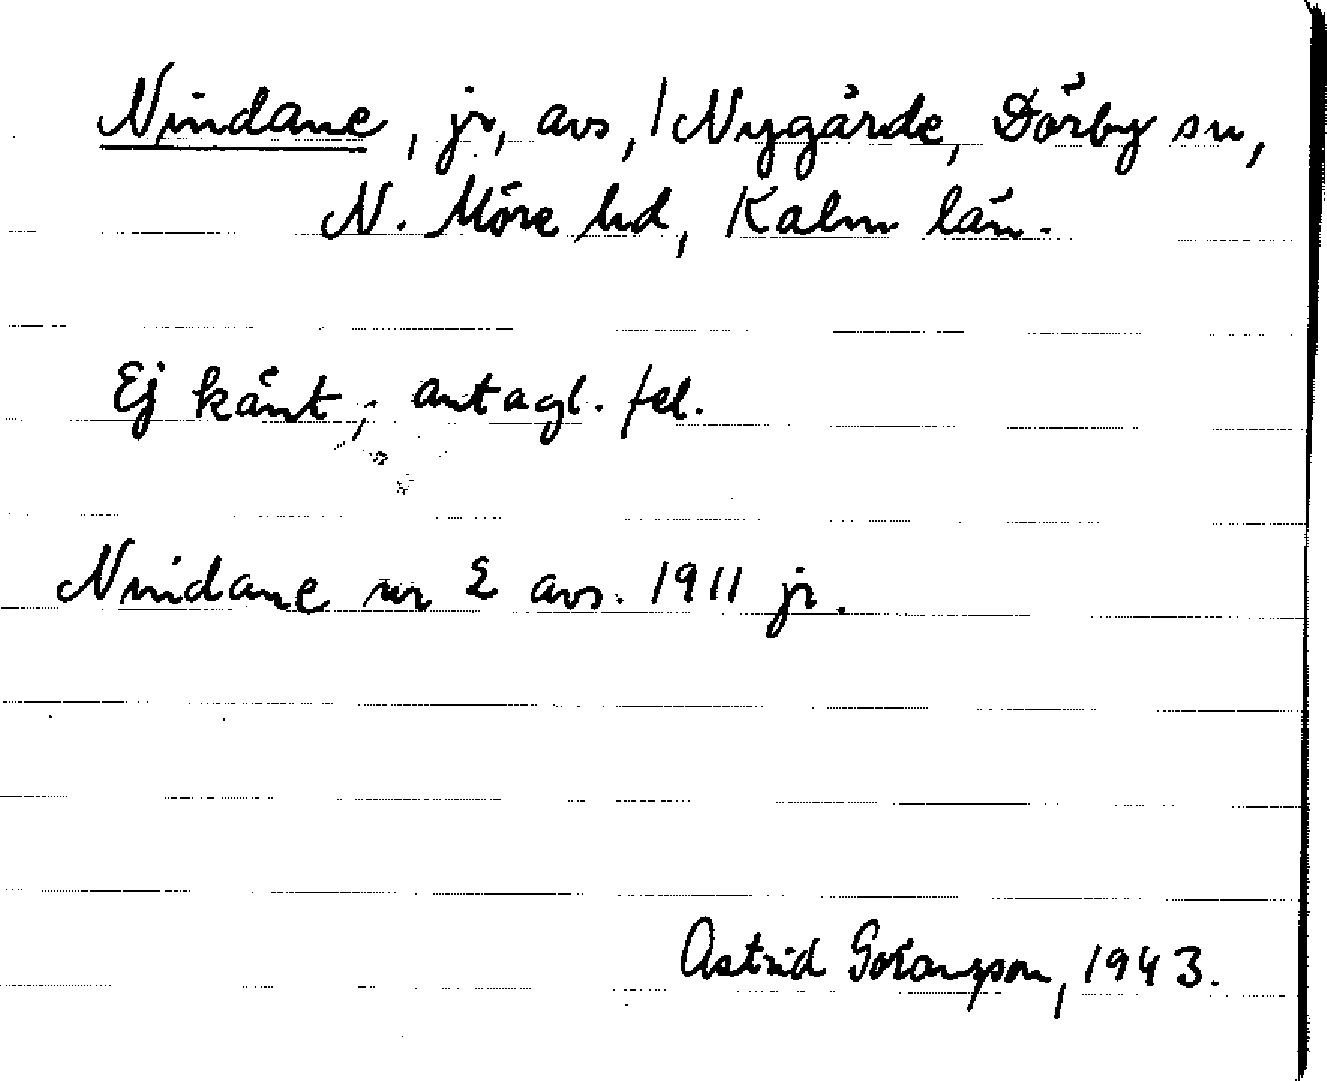 Nindane, jr, avs, / Nygärde, Dörby sn,
N. Möre hd, Kalm län.
Ej känt; antagl. fel.
Nindane nr 2 avs. 1911 jr.
Astrid Göransson, 1943.